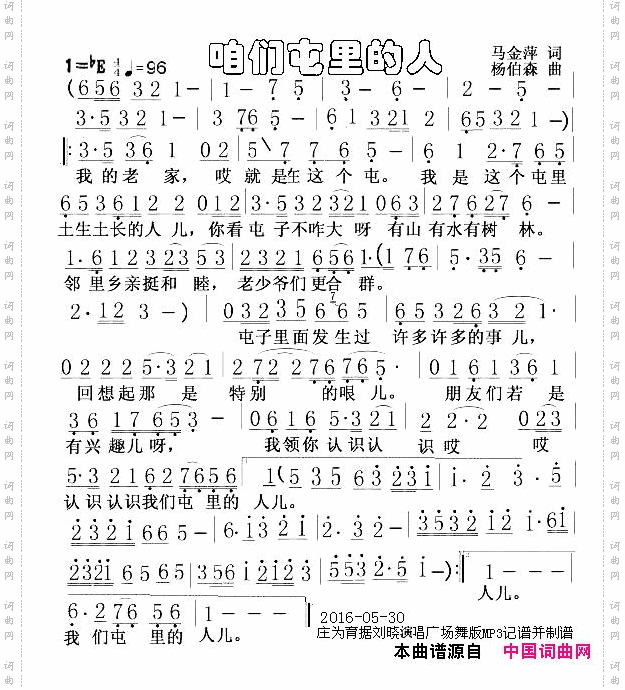 咱们屯里的人
1=♭E 1/4 ♩=96
马金萍 词
杨伯森 曲
(656 321- | 1-75 | 35·6- | 2-5
3·5321 | 3765- | 61321 | 65321-)
‖: 3·5361 02 | 5\7765- | 612·765
我的老家，哎就是在这个屯。我是这个屯里
6536122012 | 3·532321063 | 27627 6-
土生土长的人儿，你看屯子不咋大呀有山有水有树林。
1·612323532 | 2321656·1·(176 | 5·356-
邻里乡亲挺和睦，老少爷们更合群。
2·123-) | 0323565 6 | 6532632 1·
屯子里面发生过 许多许多的事儿，
022225·321 | 27227 6765· | 0161361
回想起那是特别的哏儿。朋友们若是
36 17653- | 06165·321 | 22·2 023
有兴趣儿呀，我领你认识认识哎 哎
5·321627656 | 1(53563231 | 1·23·5·
认识认识我们屯里的人儿。
232165- | 6·1321 | 2·123· | 3532 1261
2321 6565 | 3561235 | 5532·51-):‖ 1---
人儿。
6·27656 | 1---
我们屯里的人儿。
2016-05-30
庄为育据刘晓演唱广场舞版MP3记谱并制谱
本曲谱源自 中国词曲网
词曲网